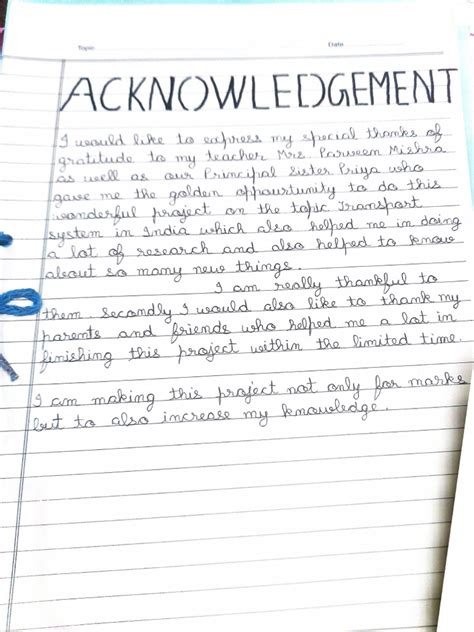 Topic Date
ACKNOWLEDGEMENT
I would like to express my special thanks of
gratitude to my teacher Mrs. Parveen Mishra
as well as our Principal Sister Priya who
gave me the golden oppourtunity to do this
wonderful project on the topic Transport
system in India which also helped me in doing
a lot of research and also helped to know
about so many new things.
I am really thankful to
them. Secondly I would also like to thank my
parents and friends who helped me a lot in
finishing this project within the limited time.
I am making this project not only for marks
but to also increase my knowledge.